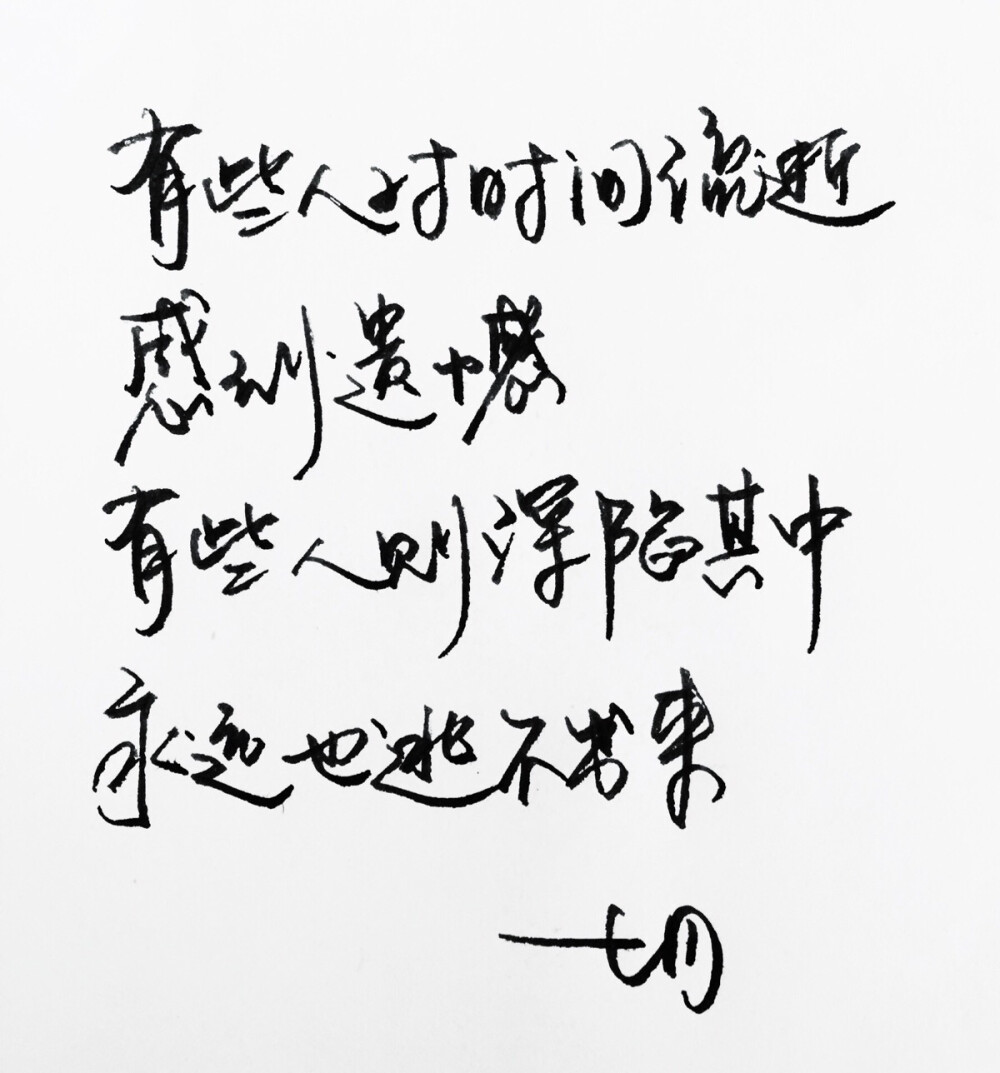 有些人对时间流逝
感到遗憾
有些人则深陷其中
永远也逃不出来